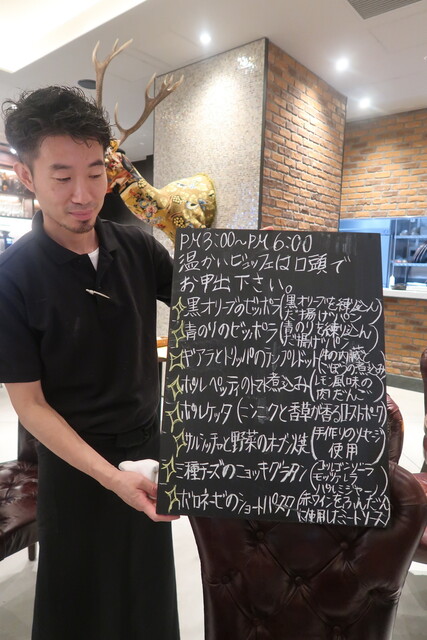 PM3:00〜PM6:00
温かいビュッフェは口頭で
お申出下さい。
黒オリーブのゼッポラ(黒オリーブを練り込んだ揚げパン)
青のりのゼッポラ(青のりを練り込んだ揚げパン)
ギアラとトリッパのランプレドット(牛の内臓の煮込み)
ポルペッティのトマト煮込み(レモン風味の肉だんご)
ポルケッタ(ニンニクと香草が香るローストポーク)
サルシッチャと野菜のオーブン焼(手作りソーセージ使用)
三種チーズのニョッキグラタン(ゴルゴンゾーラ モッツァレラ パルミジャーノ)
ボロネーゼのショートパスタ(赤ワインをふんだんに使用したミートソース)